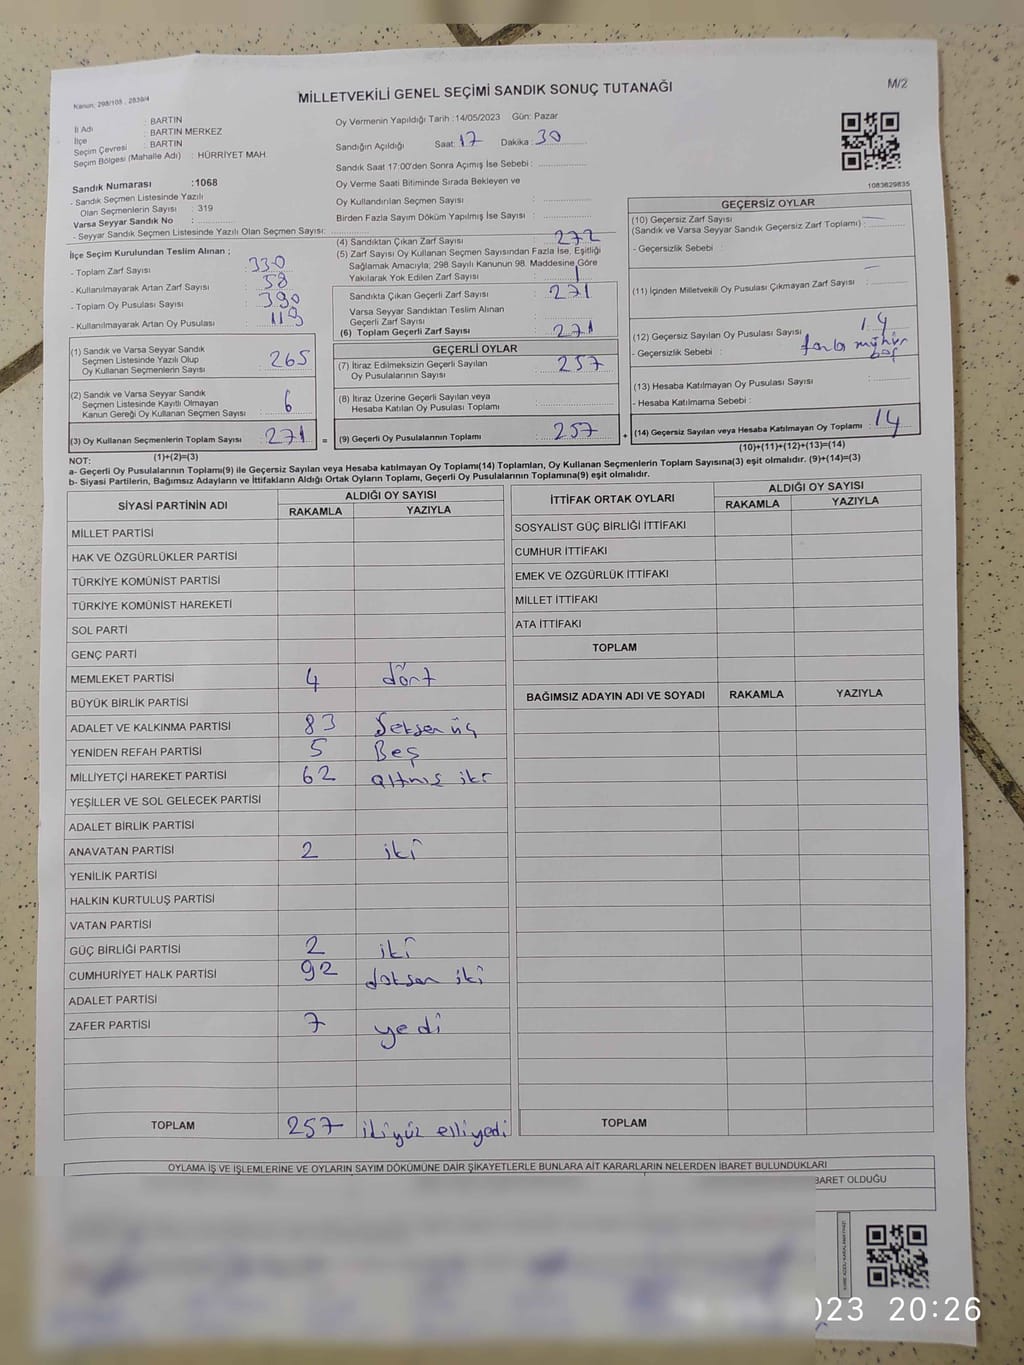 Kanun: 298/105 , 2839/4
MİLLETVEKİLİ GENEL SEÇİMİ SANDIK SONUÇ TUTANAĞI
M/2
İl Adı : BARTIN
İlçe : BARTIN MERKEZ
Seçim Çevresi : BARTIN
Seçim Bölgesi (Mahalle Adı) : HÜRRİYET MAH
Sandık Numarası :1068
- Sandık Seçmen Listesinde Yazılı
Olan Seçmenlerin Sayısı : 319
Varsa Seyyar Sandık No :
- Seyyar Sandık Seçmen Listesinde Yazılı Olan Seçmen Sayısı:
Oy Vermenin Yapıldığı Tarih :14/05/2023 Gün: Pazar
Sandığın Açıldığı Saat: 17 Dakika: 30
Sandık Saat 17:00'den Sonra Açımış İse Sebebi :
Oy Verme Saati Bitiminde Sırada Bekleyen ve
Oy Kullandırılan Seçmen Sayısı :
Birden Fazla Sayım Döküm Yapılmış İse Sayısı :
1083629835
İlçe Seçim Kurulundan Teslim Alınan ;
- Toplam Zarf Sayısı : 330
- Kullanılmayarak Artan Zarf Sayısı : 58
- Toplam Oy Pusulası Sayısı : 390
- Kullanılmayarak Artan Oy Pusulası : 119
(1) Sandık ve Varsa Seyyar Sandık
Seçmen Listesinde Yazılı Olup
Oy Kullanan Seçmenlerin Sayısı : 265
(2) Sandık ve Varsa Seyyar Sandık
Seçmen Listesinde Kayıtlı Olmayan
Kanun Gereği Oy Kullanan Seçmen Sayısı : 6
(3) Oy Kullanan Seçmenlerin Toplam Sayısı : 271 =
(1)+(2)=(3)
(4) Sandıktan Çıkan Zarf Sayısı : 272
(5) Zarf Sayısı Oy Kullanan Seçmen Sayısından Fazla İse, Eşitliği
Sağlamak Amacıyla; 298 Sayılı Kanunun 98. Maddesine Göre
Yakılarak Yok Edilen Zarf Sayısı : 1
Sandıkta Çıkan Geçerli Zarf Sayısı : 271
Varsa Seyyar Sandıktan Teslim Alınan
Geçerli Zarf Sayısı :
(6) Toplam Geçerli Zarf Sayısı : 271
GEÇERLİ OYLAR
(7) İtiraz Edilmeksizin Geçerli Sayılan
Oy Pusulalarının Sayısı : 257
(8) İtiraz Üzerine Geçerli Sayılan veya
Hesaba Katılan Oy Pusulası Toplamı :
(9) Geçerli Oy Pusulalarının Toplamı : 257 +
GEÇERSİZ OYLAR
(10) Geçersiz Zarf Sayısı
(Sandık ve Varsa Seyyar Sandık Geçersiz Zarf Toplamı) : —
- Geçersizlik Sebebi :
(11) İçinden Milletvekili Oy Pusulası Çıkmayan Zarf Sayısı : —
(12) Geçersiz Sayılan Oy Pusulası Sayısı : 14
- Geçersizlik Sebebi : fazla mühür
boş
(13) Hesaba Katılmayan Oy Pusulası Sayısı :
- Hesaba Katılmama Sebebi :
(14) Geçersiz Sayılan veya Hesaba Katılmayan Oy Toplamı : 14
(10)+(11)+(12)+(13)=(14)
NOT:
a- Geçerli Oy Pusulalarının Toplamı(9) ile Geçersiz Sayılan veya Hesaba katılmayan Oy Toplamı(14) Toplamları, Oy Kullanan Seçmenlerin Toplam Sayısına(3) eşit olmalıdır. (9)+(14)=(3)
b- Siyasi Partilerin, Bağımsız Adayların ve İttifakların Aldığı Ortak Oyların Toplamı, Geçerli Oy Pusulalarının Toplamına(9) eşit olmalıdır.
SİYASİ PARTİNİN ADI ALDIĞI OY SAYISI
RAKAMLA YAZIYLA
MİLLET PARTİSİ
HAK VE ÖZGÜRLÜKLER PARTİSİ
TÜRKİYE KOMÜNİST PARTİSİ
TÜRKİYE KOMÜNİST HAREKETİ
SOL PARTİ
GENÇ PARTİ
MEMLEKET PARTİSİ 4 dört
BÜYÜK BİRLİK PARTİSİ
ADALET VE KALKINMA PARTİSİ 83 Seksen üç
YENİDEN REFAH PARTİSİ 5 Beş
MİLLİYETÇİ HAREKET PARTİSİ 62 altmış iki
YEŞİLLER VE SOL GELECEK PARTİSİ
ADALET BİRLİK PARTİSİ
ANAVATAN PARTİSİ 2 iki
YENİLİK PARTİSİ
HALKIN KURTULUŞ PARTİSİ
VATAN PARTİSİ
GÜÇ BİRLİĞİ PARTİSİ 2 iki
CUMHURİYET HALK PARTİSİ 92 doksan iki
ADALET PARTİSİ
ZAFER PARTİSİ 7 yedi
TOPLAM 257 ikiyüz elliyedi
İTTİFAK ORTAK OYLARI ALDIĞI OY SAYISI
RAKAMLA YAZIYLA
SOSYALİST GÜÇ BİRLİĞİ İTTİFAKI
CUMHUR İTTİFAKI
EMEK VE ÖZGÜRLÜK İTTİFAKI
MİLLET İTTİFAKI
ATA İTTİFAKI
TOPLAM
BAĞIMSIZ ADAYIN ADI VE SOYADI RAKAMLA YAZIYLA
TOPLAM
OYLAMA İŞ VE İŞLEMLERİNE VE OYLARIN SAYIM DÖKÜMÜNE DAİR ŞİKAYETLERLE BUNLARA AİT KARARLARIN NELERDEN İBARET BULUNDUKLARI
BARET OLDUĞU
023 20:26